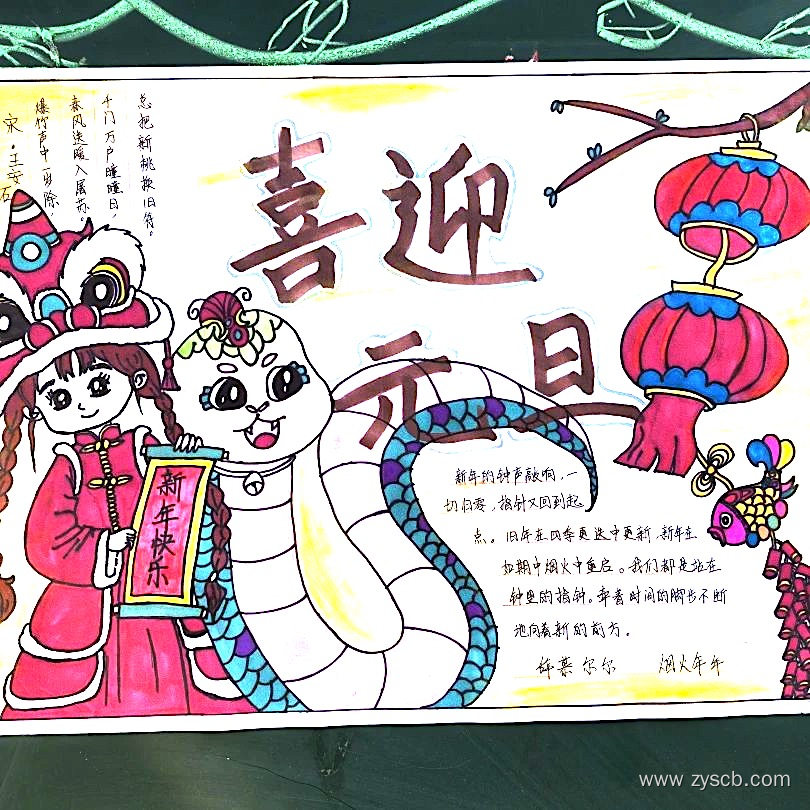 总把新桃换旧符。
千门万户曈曈日，
春风送暖入屠苏。
爆竹声中一岁除，
宋·王安石
喜迎
元旦
新年快乐
新年的钟声敲响，一
切归零，指针又回到起
点。旧年在四季更迭中更新，新年在
如期中烟火中重启。我们都是站在
钟里的指针。牵着时间的脚步不断
地向着新的前方。
尔尔 烟火年年
www.zyscb.com